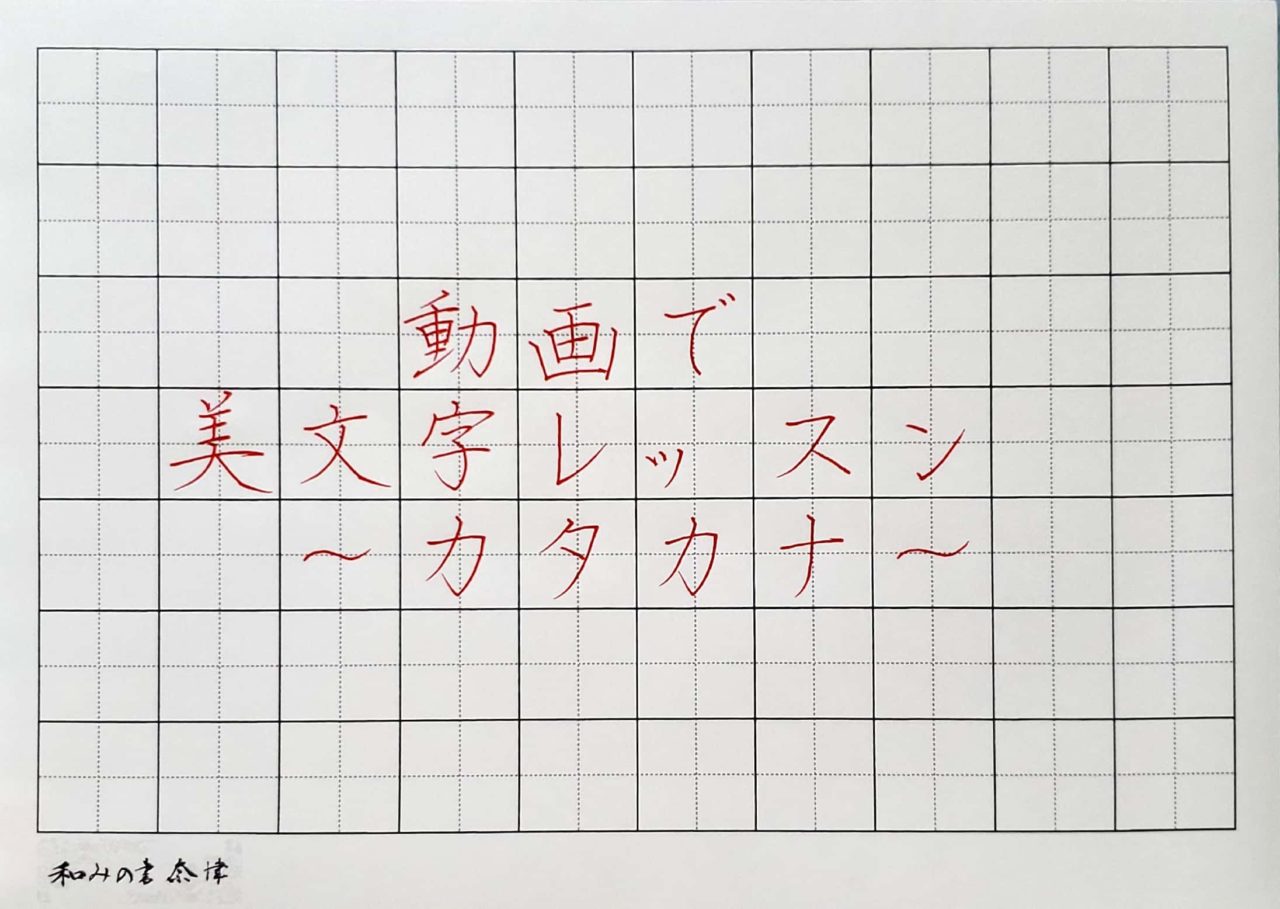 動画で
美文字レッスン
～カタカナ～
和みの書 奈津